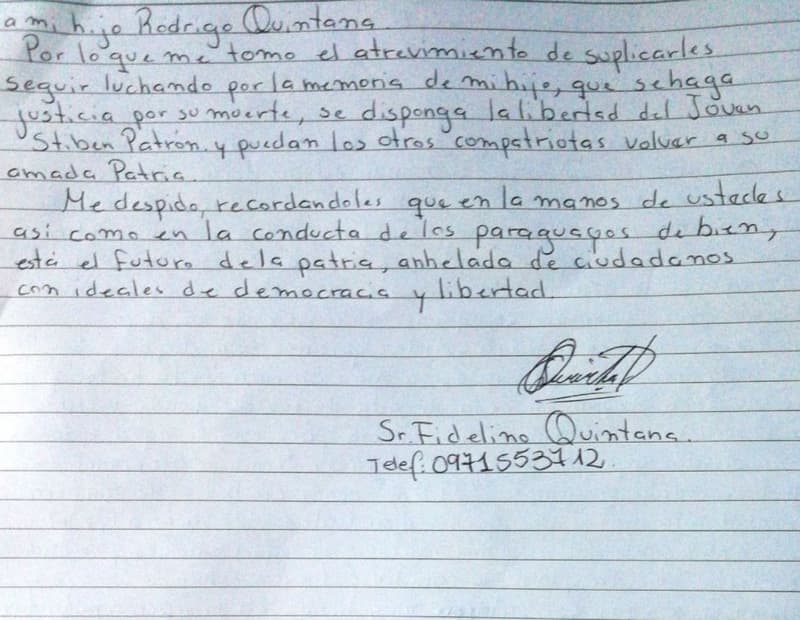 a mi hijo Rodrigo Quintana
Por lo que me tomo el atrevimiento de suplicarles
seguir luchando por la memoria de mi hijo, que se haga
justicia por su muerte, se disponga la libertad del Joven
Stiben Patrón y puedan los otros compatriotas volver a su
amada Patria.
Me despido, recordandoles que en la manos de ustedes
así como en la conducta de los paraguayos de bien,
está el futuro de la patria, anhelada de ciudadanos
con ideales de democracia y libertad.
Sr. Fidelino Quintana.
Telef: 0971553712.